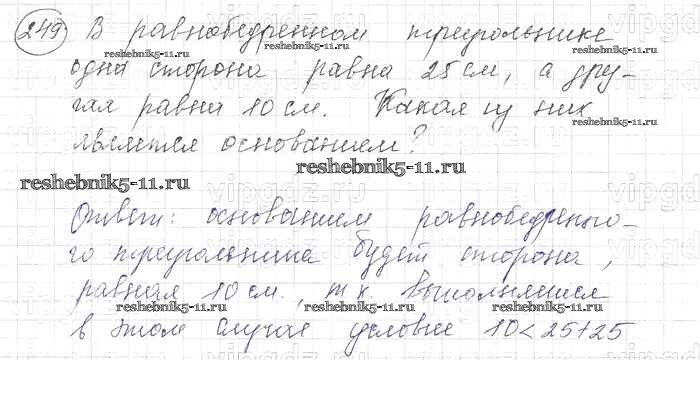 249) В равнобедренном треугольнике
одна сторона равна 25 см, а дру-
гая равна 10 см. Какая из них
является основанием?
Ответ: основанием равнобедренно-
го треугольника будет сторона,
равная 10 см., т к выполняется
в этом случае условие 10 < 25 + 25
reshebnik5-11.ru
reshebnik5-11.ru
reshebnik5-11.ru
reshebnik5-11.ru
reshebnik5-11.ru
reshebnik5-11.ru
reshebnik5-11.ru
reshebnik5-11.ru
vipgdz.ru